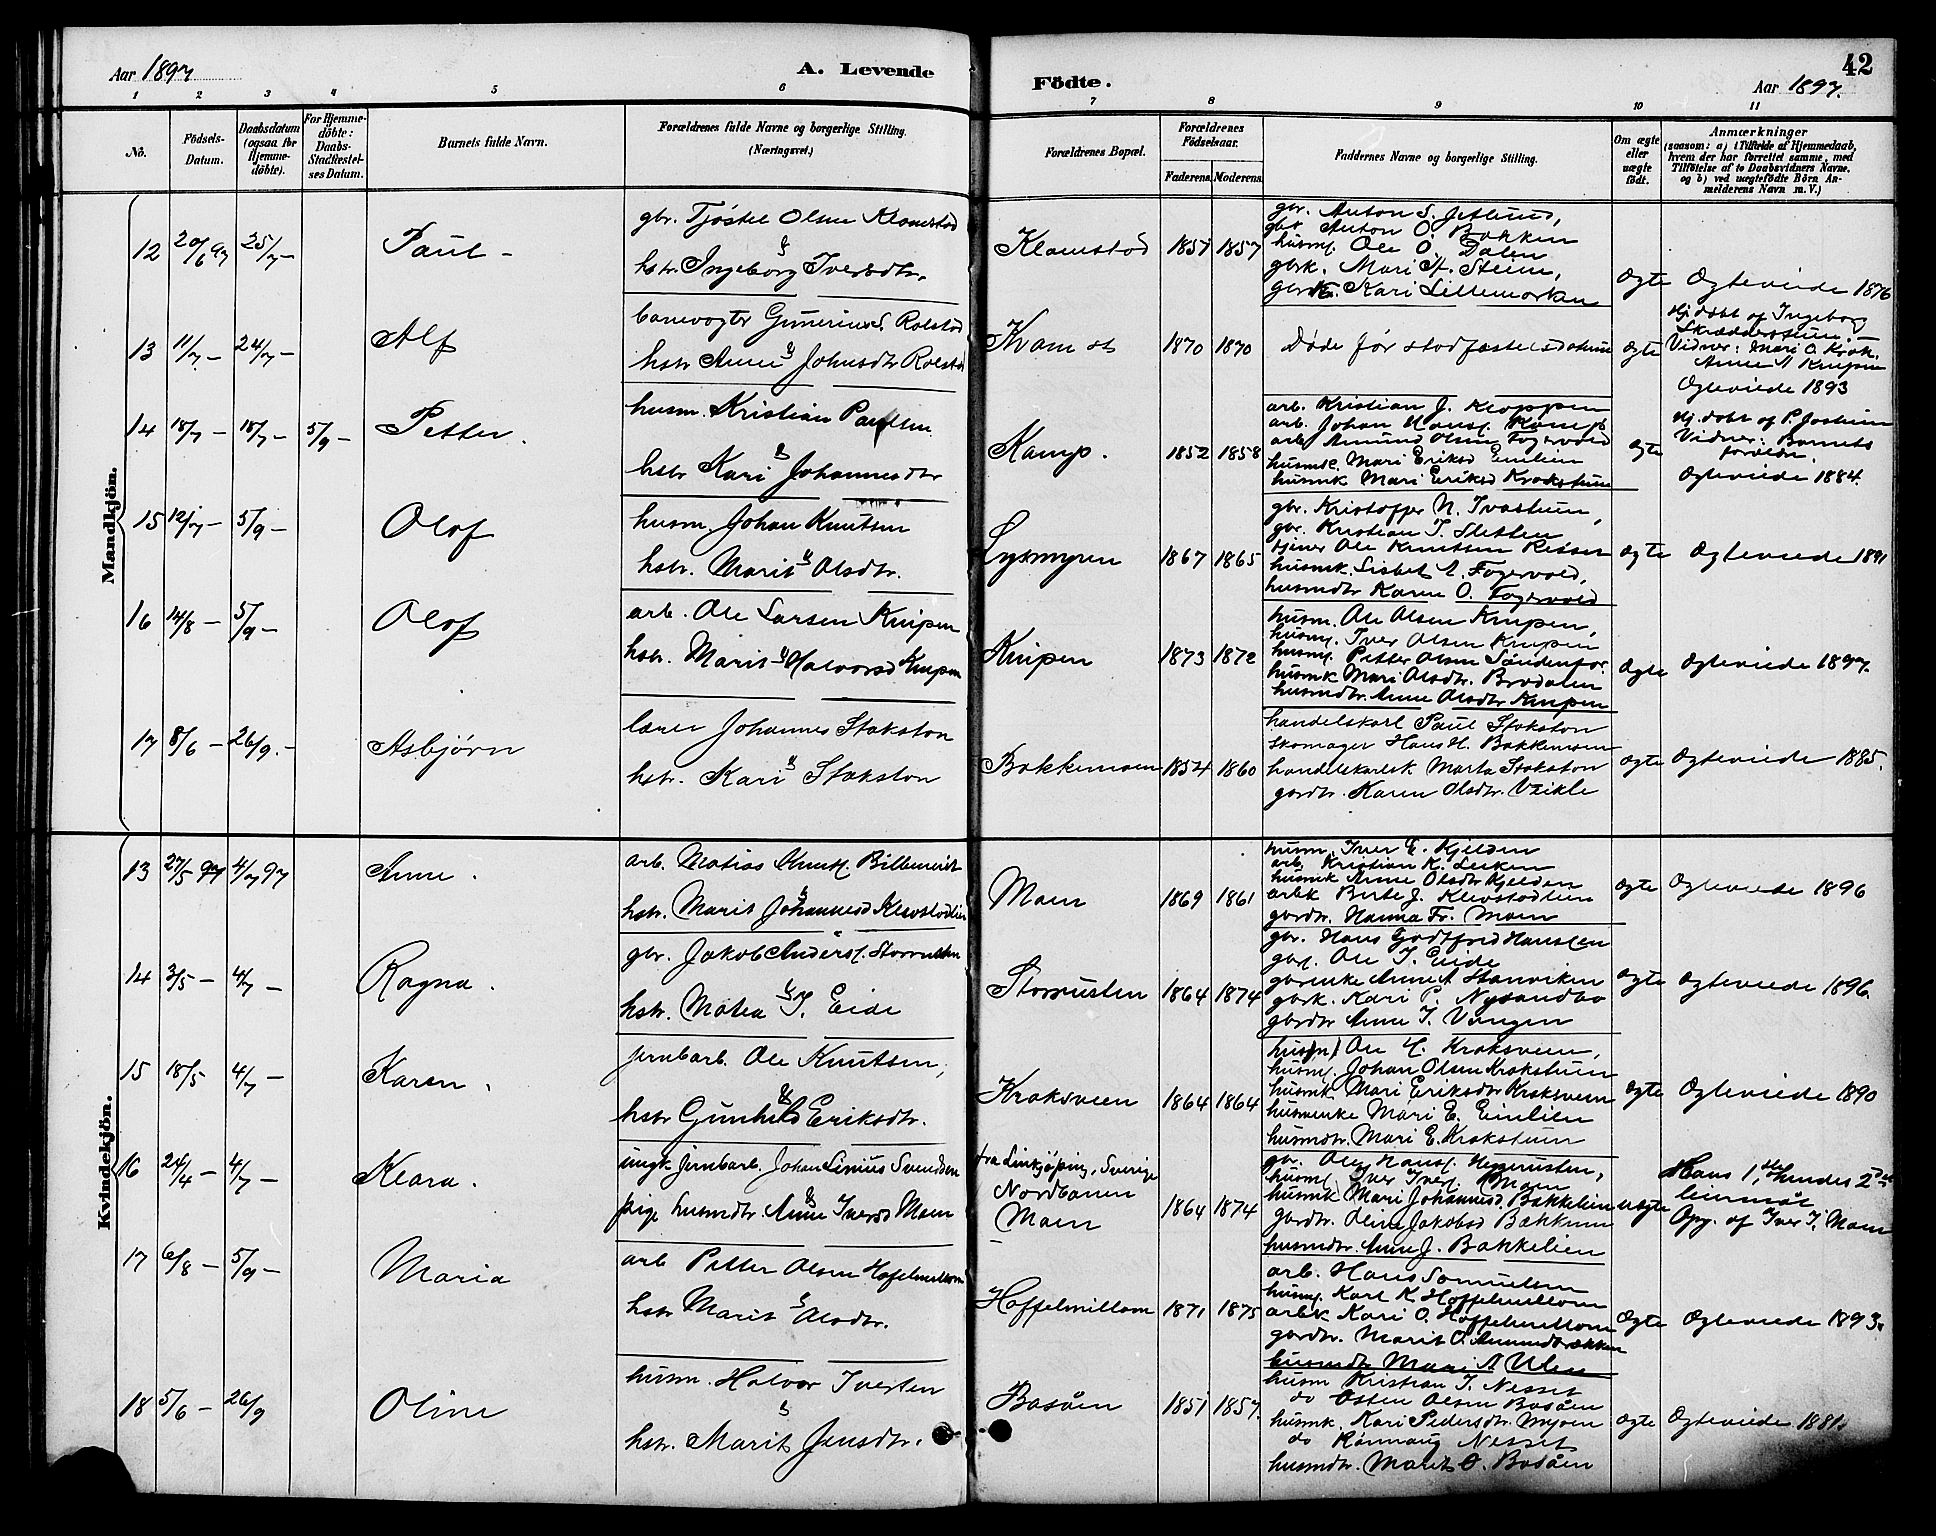 Aar 1897
A. Levende
Födte.
42
Aar 1897.
1 2 3 4 5 6 7 8 9 10 11
No.
Födsels-
Datum.
Daabsdatum
(ogsaa for
Hjemme-
döbte).
For Hjemme-
döbte:
Daabs-
Stadfæstel-
ses Datum.
Barnets fulde Navn.
Forældrenes fulde Navne og borgerlige Stilling.
(Næringsvei.)
Forældrenes Bopæl.
Forældrenes
Födselsaar.
Faderens. Moderens.
Faddernes Navne og borgerlige Stilling.
Om ægte
eller
uægte
födt.
Anmærkninger
(saasom: a) i Tilfælde af Hjemmedaab,
hvem der har forrettet samme, med
Tilföielse af to Daabsvidners Navne,
og b) ved uægtefödte Börn An-
melderens Navn m. V.)
Mandkjön.
12 20/6 97 25/7 – Paul –
gbr. Tjøstel Olsen Klomstad
&
hstr. Ingeborg Iversdtr.
Klomstad 1857 1857
gbr. Anton S. Jetlund,
gbr Anton O. Bakken
husmf. Ole O. Dalen
gbrk. Mari St. Steine,
Kari Lillemorken
Ægte Ægteviede 1876
13 11/7 – 24/7 – Alf
banevogter Gunerius S. Rolstad
&
hstr Anne Johnsdtr Rolstad
Kvam st 1870 1870
Døde før stadfæstelsesdatum
ægte
Hj. døbt af Ingeborg
Skrædderstuen. –
Vidner: Mari O. Krok.
Anne A Knipen
Ægteviede 1893
14 18/7 – 18/7 – 5/9 – Petter.
husm. Kristian Paulsen
&
hstr Kari Johannesdtr
Kamp. 1852 1858
arb. Kristian J. Kloppen
arb. Johan Hansf. Kamp
arb Amund Olsen Fagervold
husmk. Mari Eriksd Emilien
husmk Mari Eriksd Krokstuen
ægte
Hj. døbt af P. Jostuen
Vidner: Barnets
forældre.
Ægteviede 1884.
15 12/7 – 5/9 – Olaf
husm. Johan Knutsen
&
hstr. Marit Olsdtr.
Lysmyren 1867 1865
gbr. Kristoffer N. Ivastuen,
gbr. Kristian I. Sletten
tjener Ole Knutsen Risser
husmk. Lisbet A. Fagervold,
husmdtr Karen O. Fagervold
ægte Ægteviede 1891
16 14/8 – 5/9 – Olaf
arb. Ole Larsen Knipen
&
hstr. Marit Halvorsd Knipen
Knipen 1873 1872
husm. Ole Olsen Knipen,
husmf. Iver Olsen Knipen
husmf. Petter Olsen Søndenfor
husmk Mari Olsdtr. Brodalen
husmdtr. Anne Olsdtr Knipen
ægte Ægteviede 1897.
17 8/6 – 26/9. – Asbjørn
lærer Johannes Stokston
&
hstr. Kari Stokston
Bakkemoen 1854 1860
handelskarl Paul Stokston
skomager Hans H. Bakkemoen
handelskarlsk Marta Stokston
gårdtr. Karen Olsdtr. Veikle
ægte Ægteviede 1885.
Kvindekjön.
13 27/5 97 4/7 97 Anne.
arb. Matias Knutsf. Billemeist
&
hstr. Marit Johannesd Klevstadlien
Moen 1869 1861
husm. Iver E. Kjelden
arb. Kristian K. Leiken
husmk Anne Olsdtr Kjelden
arbk Berte J. Klevstadlien
gårdtr. Hanna Fr. Moen
ægte Ægteviede 1896
14 3/5 – 4/7 – Ragna.
gbr. Jakob Andersf. Storrusten
&
hstr. Matea I. Eide
Storrusten 1864 1874
gbr. Hans Godtfred Hanssen
gbrf. Ole I. Eide
gbrenke Anne A Stanviken
gbrk. Kari P. Nysandbo
gbrdtr Anne I. Vangen
ægte Ægteviede 1896.
15 18/5 4/7 – Karen.
jernbarb. Ole Knutsen,
&
hstr Gunhild Eriksdtr.
Kroksveen 1864 1864
husm. Ole H. Kroksveen,
husmf. Johan Olsen Krokstuen
husmk. Mari Eriksdtr Kroksveen
husmenke Mari E. Emilien
husmdtr. Mari E. Krokstuen
ægte Ægteviede 1890
16 24/4 – 4/7 – Klara.
ungk. jernbarb. Johan Linius Svendsen
&
pige husmdtr. Anne Iversd Moen
fra Linkjøping, Sverige
Nordbanen
Moen
– 1864 1874
gbr. Ole Hansf. Heggerusten,
husmf. Iver Iverf. Moen
husmk Mari Johannesd. Bakkelien
gårdtr. Oline Jakobsd Bækken
husmdtr. Anne J. Bakkelien
uægte
Hans 1ste, hendes 2det
leiermål
Opg. af Iver I. Moen
17 6/8 – 5/9 – Maria
arb Petter Olsen Hoffelmillom
&
hstr Marit Olsdtr.
Hoffelmillom 1871 1875
arb. Hans Samuelsen
husmf. Karl K. Hoffelmillom
arbk Kari O. Hoffelmillom
gårdtr. Marit O. Amundbrækken
husmdtr Mari A Ulen
Ægte Ægteviede 1893.
18 5/6 – 26/9 Oline
husm. Halvor Iversen
&
hstr. Marit Jensdtr.
Basåen 1851 1857.
husm Kristian I. Nesset
do Østen Olsen Basåen
husmk. Kari Pedersdtr. Mysoen
do Rønnaug Nesset
husmdtr. Marit O. Basåen
ægte Ægteviede 1881.